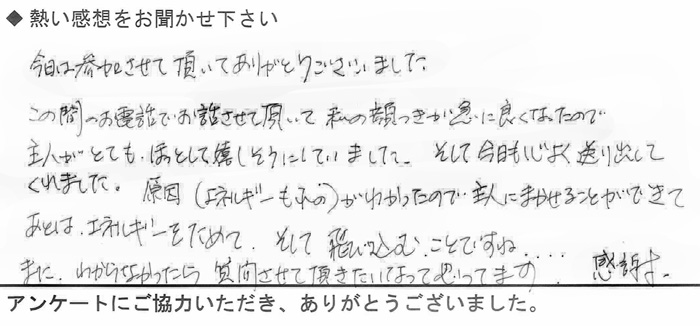 ◆ 熱い感想をお聞かせ下さい
今日は参加させて頂いてありがとうございました。
この間のお電話でお話させて頂いて 私の顔つきが急に良くなったので
主人がとても、ほっとして嬉しそうにしていました。そして今日も心よく送り出して
くれました。原因(エネルギーもれの)がわかったので主人にまかせることができて
あとは、エネルギーをためて、そして 飛び込む、ことですね....
また、わからなかったら 質問させて頂きたいなって思ってます 。 感謝
アンケートにご協力いただき、ありがとうございました。